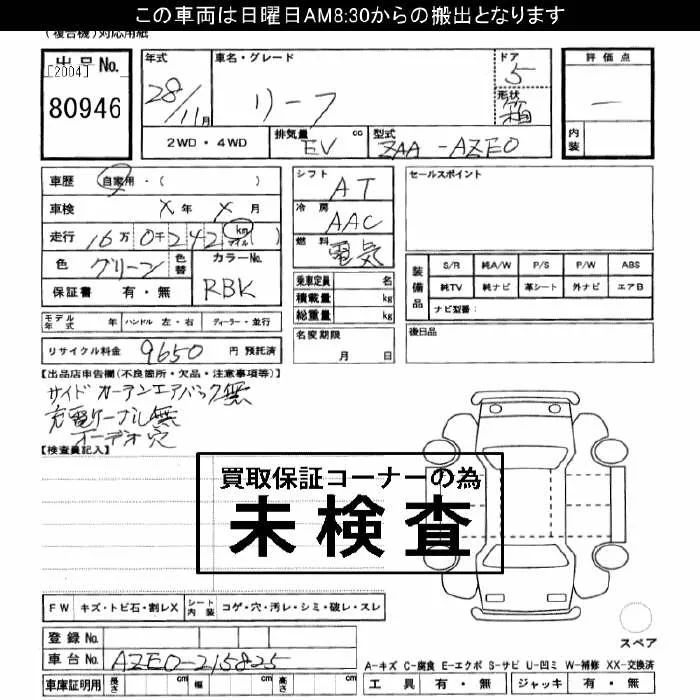 この車両は日曜日AM8:30からの搬出となります
(複合機)対応用紙
出品No.
[2004]
80946
年式
28/11月
車名・グレード
リーフ
ドア
5
形状
箱
評価点
―
内装
2WD・4WD
排気量
EV cc
型式
ZAA-AZE0
車歴 自家用・( )
車検 X年 X月
走行 16万 0千 2 4 2 km マイル ( )
色 グリーン 色替
カラーNo.
RBK
保証書 有・無
シフト
AT
冷房
AAC
燃料
電気
乗車定員 名
積載量 kg
総重量 kg
セールスポイント
装備品
S/R 純A/W P/S P/W ABS
純TV 純ナビ 革シート 外ナビ エアB
ナビ型番:
モデル年式 年 ハンドル 左・右 ディーラー・並行
リサイクル料金 9650 円 預託済
名変期限
月 日
後日品
【出品店申告欄(不良箇所・欠品・注意事項等)】
サイド カーテンエアバック無
充電ケーブル無
オーデオ穴
【検査員記入】
買取保証コーナーの為
未検査
FW キズ・トビ石・割レX シート内装 コゲ・穴・汚レ・シミ・破レ・スレ
登録No.
車台No. AZE0-215825
車庫証明用 長さ cm 幅 cm 高さ cm
スペア
A-キズ C-腐食 E-エクボ S-サビ U-凹ミ W-補修 XX-交換済
工具 有・無 ジャッキ 有・無